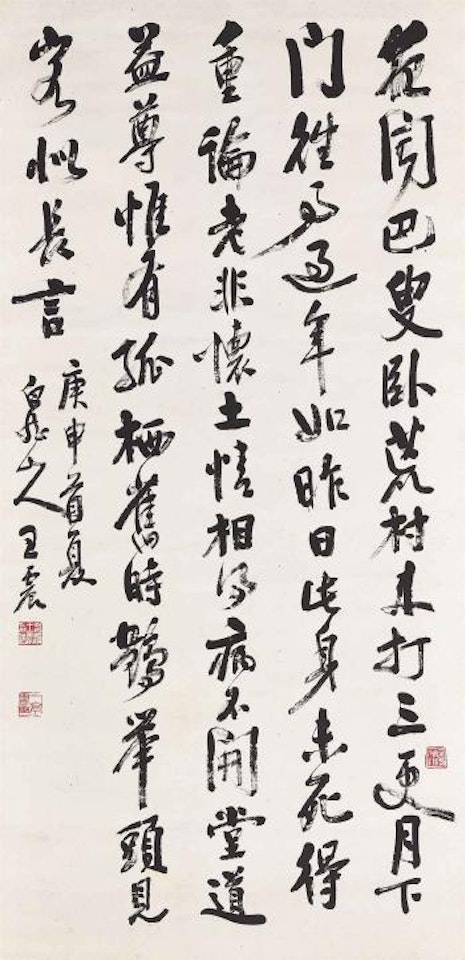 夜聞巴叟臥荒村來打三更月下
門往事過年如昨日此身未死得
重論老非懷土情相得病不開堂道
益尊惟有孤栖舊時鶴舉頭見
客似長言
庚申首夏
白龍山人王震